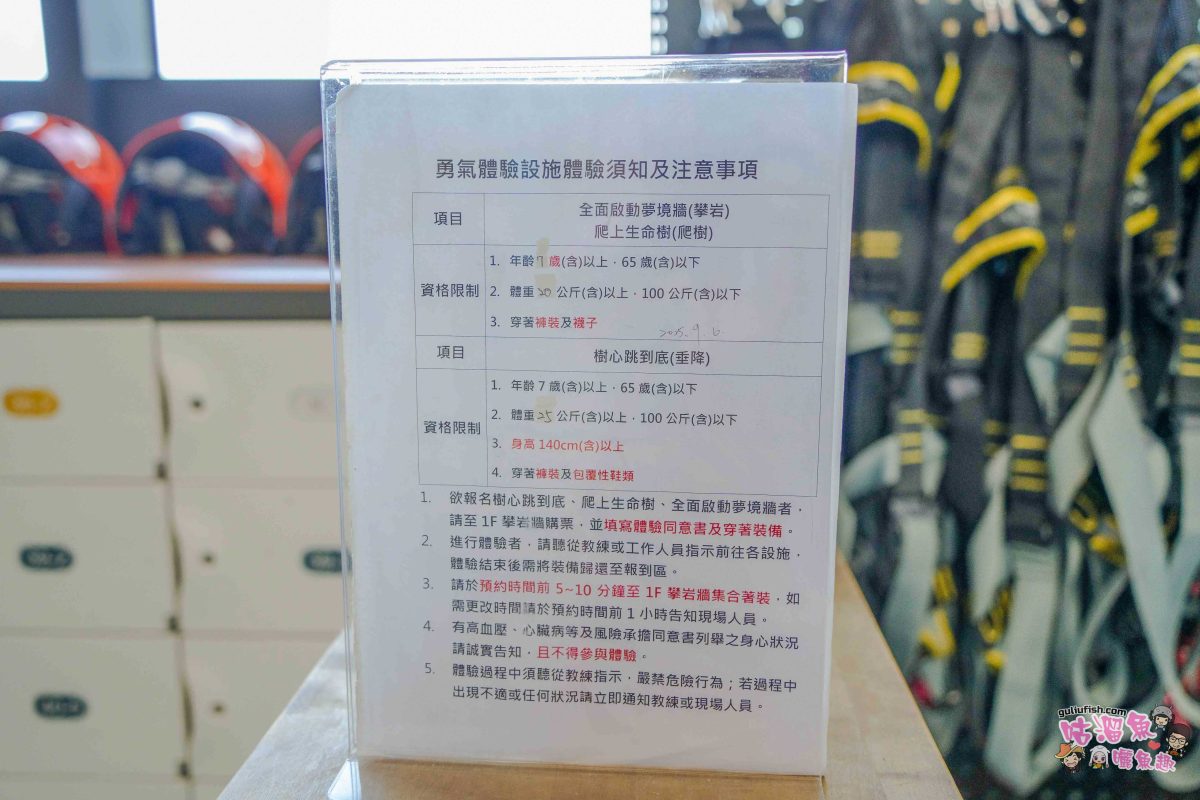 勇氣體驗設施體驗須知及注意事項
項目
全面啟動夢境牆(攀岩)
爬上生命樹(爬樹)
資格限制
1. 年齡7歲(含)以上，65歲(含)以下
2. 體重20公斤(含)以上，100公斤(含)以下
3. 穿著褲裝及襪子
2025.9.6
項目
樹心跳到底(垂降)
資格限制
1. 年齡7歲(含)以上，65歲(含)以下
2. 體重25公斤(含)以上，100公斤(含)以下
3. 身高140cm(含)以上
4. 穿著褲裝及包覆性鞋類
1. 欲報名樹心跳到底、爬上生命樹、全面啟動夢境牆者，
請至1F攀岩牆購票，並填寫體驗同意書及穿著裝備。
2. 進行體驗者，請聽從教練或工作人員指示前往各設施，
體驗結束後需將裝備歸還至報到區。
3. 請於預約時間前5~10分鐘至1F攀岩牆集合著裝，如
需更改時間請於預約時間前1小時告知現場人員。
4. 有高血壓、心臟病等及風險承擔同意書列舉之身心狀況
請誠實告知，且不得參與體驗。
5. 體驗過程中須聽從教練指示，嚴禁危險行為；若過程中
出現不適或任何狀況請立即通知教練或現場人員。
guliufish.com
咕溜魚
曬魚趣